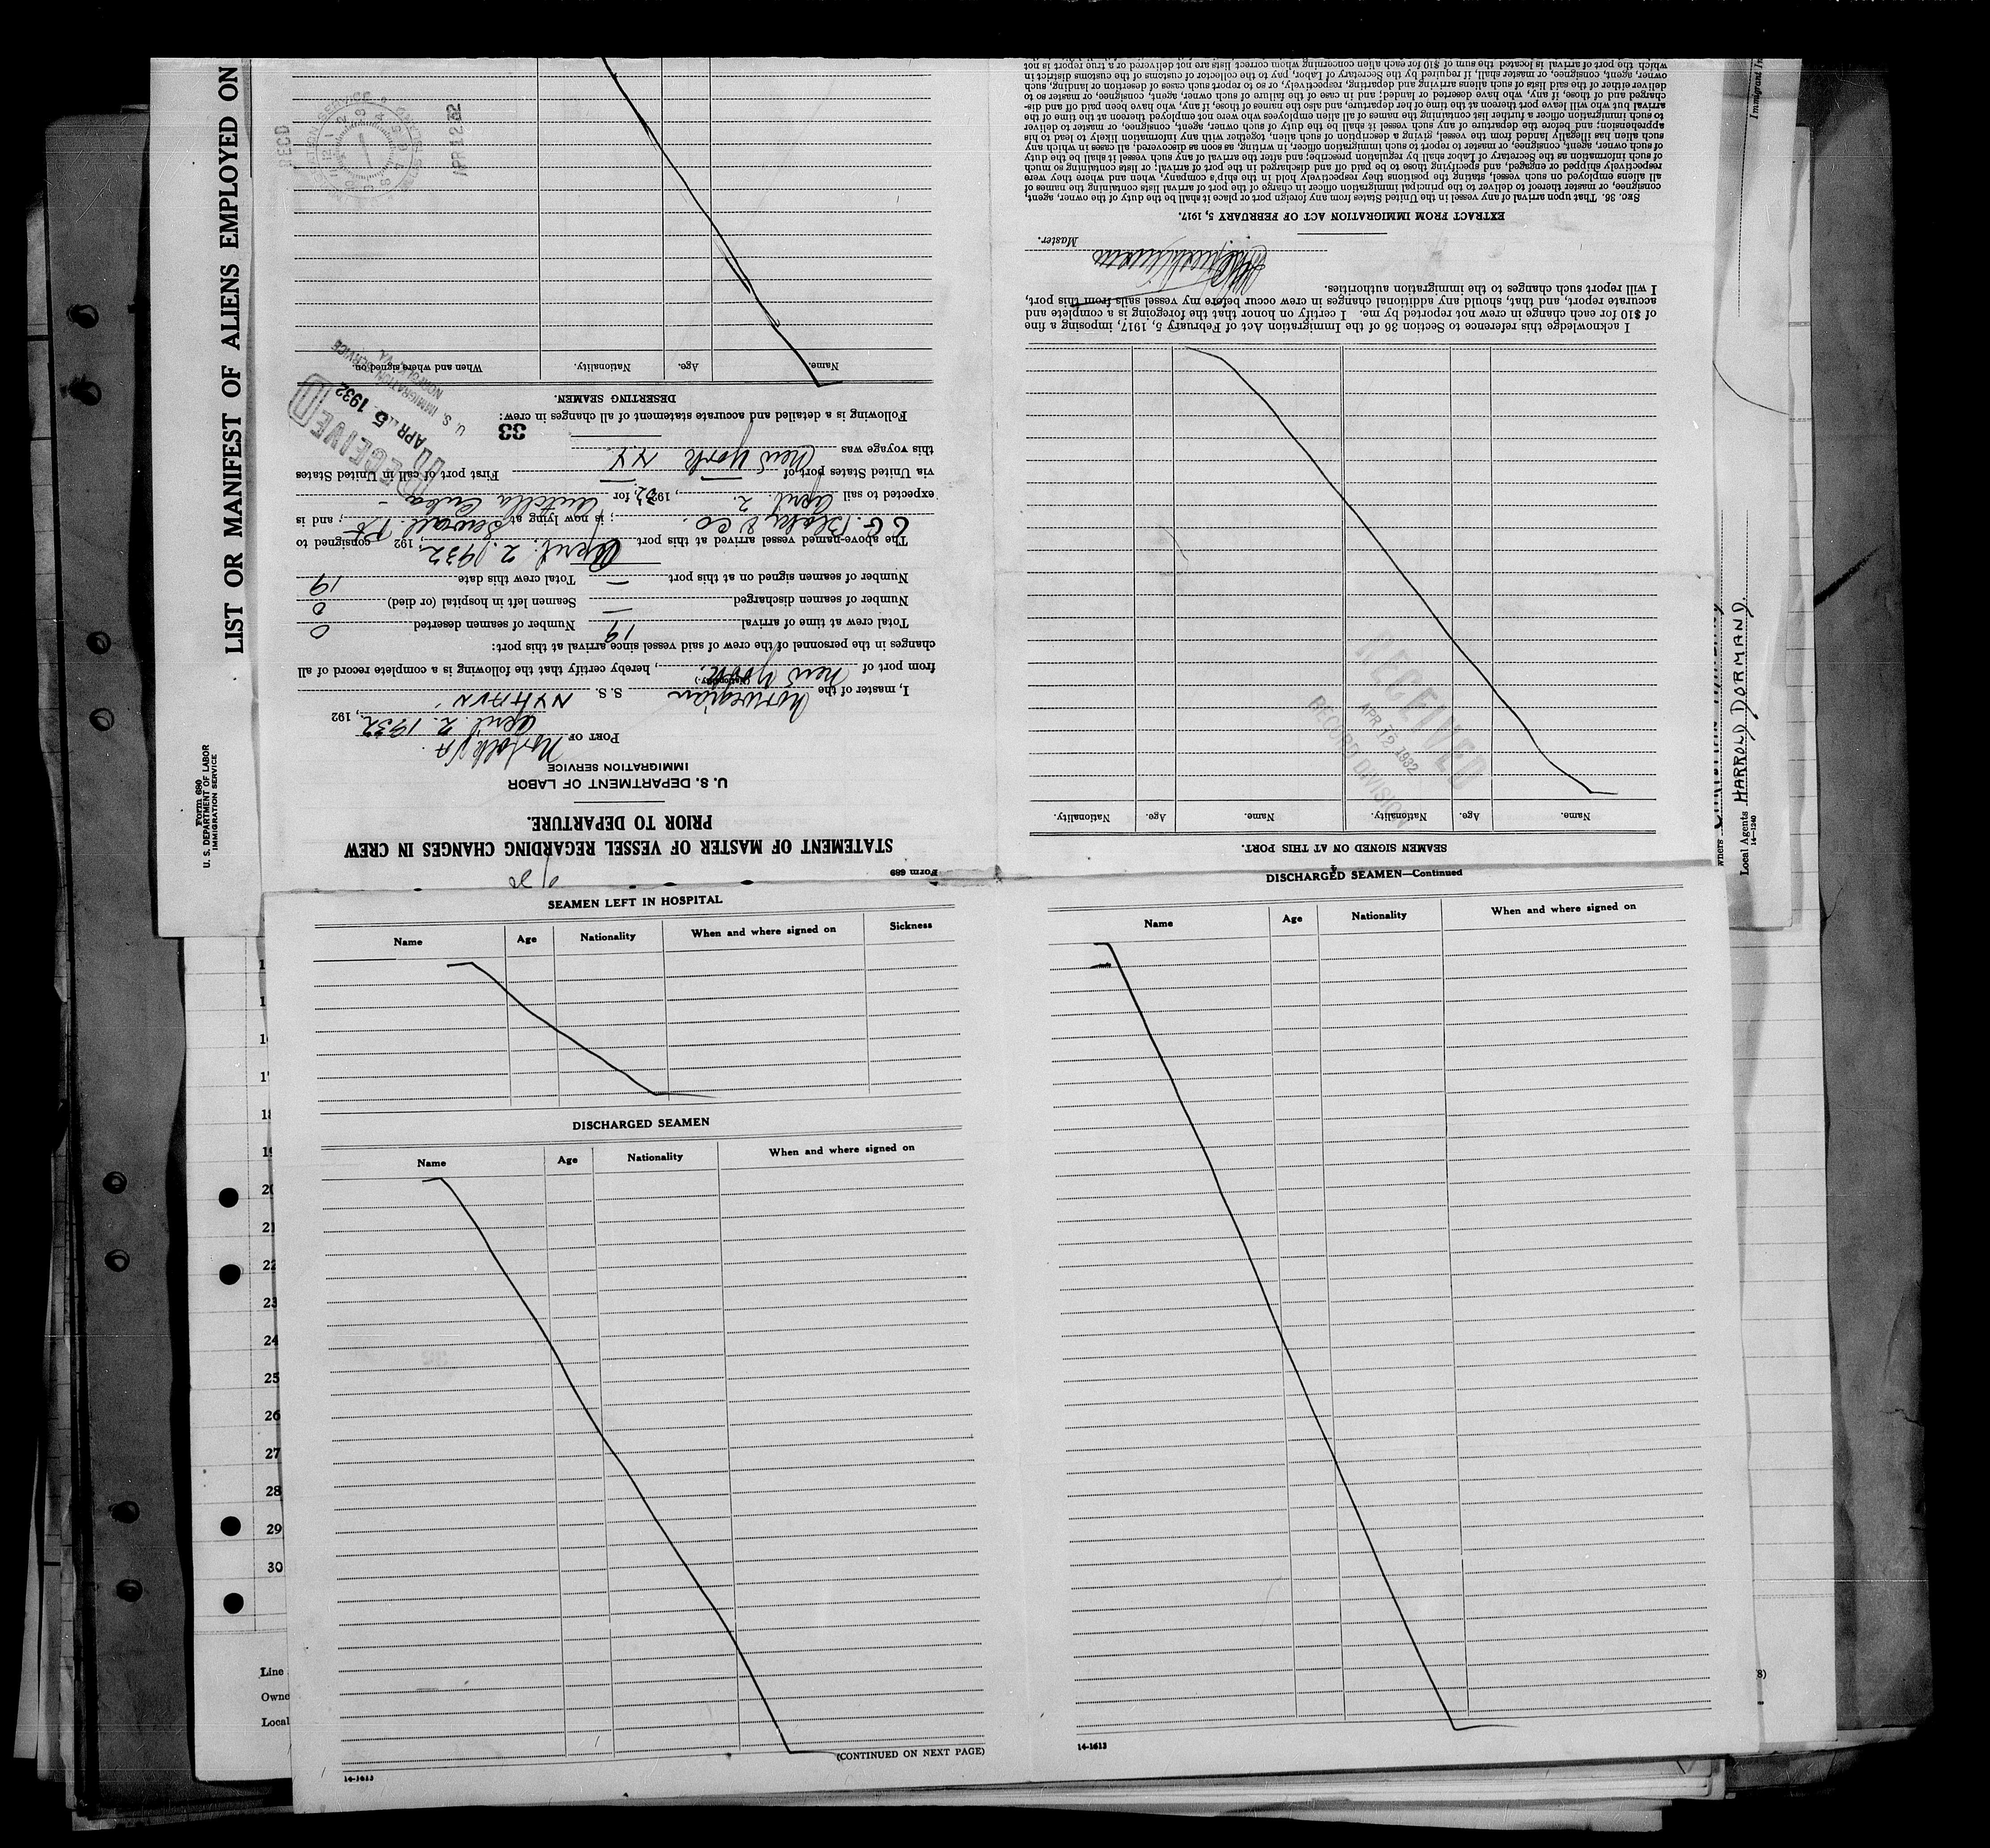 LIST OR MANIFEST OF ALIENS EMPLOYED ON
Form 680
U. S. DEPARTMENT OF LABOR
IMMIGRATION SERVICE
Form 689
STATEMENT OF MASTER OF VESSEL REGARDING CHANGES IN CREW
PRIOR TO DEPARTURE.
U. S. DEPARTMENT OF LABOR
IMMIGRATION SERVICE
PORT OF Norfolk Va.
April 2. 1932, 192
I, master of the Norwegian S. S. NYHAVN
(Nationality.)
from port of New York, hereby certify that the following is a complete record of all
changes in the personnel of the crew of said vessel since arrival at this port:
Total crew at time of arrival 19 Number of seamen deserted 0
Number of seamen discharged — Seamen left in hospital (or died) 0
Number of seamen signed on at this port — Total crew this date 19
The above-named vessel arrived at this port April. 2. 1932, 192 consigned to
& Co.; is now lying at Sewall Pt; and is
expected to sail April 2, 1932, for Antilla Cuba
via United States port of — First port of call in United States
this voyage was New York N.Y.
Following is a detailed and accurate statement of all changes in crew:
33
DESERTING SEAMEN.
Name. Age. Nationality. When and where signed on.
RECEIVED
APR 5 1932
U. S. IMMIGRATION SERVICE
NORFOLK, VA.
REC'D
APR 12 32
SEAMEN SIGNED ON AT THIS PORT.
Name. Age. Nationality. Name. Age. Nationality.
RECEIVED
APR 12 1932
RECORD DIVISION
I acknowledge this reference to Section 36 of the Immigration Act of February 5, 1917, imposing a fine
of $10 for each change in crew not reported by me. I certify on honor that the foregoing is a complete and
accurate report, and that, should any additional changes in crew occur before my vessel sails from this port,
I will report such changes to the immigration authorities.
Master.
EXTRACT FROM IMMIGRATION ACT OF FEBRUARY 5, 1917.
SEC. 36. That upon arrival of any vessel in the United States from any foreign port or place it shall be the duty of the owner, agent,
consignee, or master thereof to deliver to the principal immigration officer in charge of the port of arrival lists containing the names of
all aliens employed on such vessel, stating the positions they respectively hold in the ship's company, when and where they were
respectively shipped or engaged, and specifying those to be paid off and discharged in the port of arrival; or lists containing so much
of such information as the Secretary of Labor shall by regulation prescribe; and after the arrival of any such vessel it shall be the duty
of such owner, agent, consignee, or master to report to such immigration officer, in writing, as soon as discovered, all cases in which any
such alien has illegally landed from the vessel, giving a description of such alien, together with any information likely to lead to his
apprehension; and before the departure of any such vessel it shall be the duty of such owner, agent, consignee, or master to deliver
to such immigration officer a further list containing the names of all alien employees who were not employed thereon at the time of the
arrival but who will leave port thereon at the time of her departure, and also the names of those, if any, who have been paid off and dis-
charged and of those, if any, who have deserted or landed; and in case of the failure of such owner, agent, consignee, or master so to
deliver either of the said lists of such aliens arriving and departing, respectively, or so to report such cases of desertion or landing, such
owner, agent, consignee, or master shall, if required by the Secretary of Labor, pay to the collector of customs of the customs district in
which the port of arrival is located the sum of $10 for each alien concerning whom correct lists are not delivered or a true report is not
Local Agents HARROLD DORMAND.
14—1240
SEAMEN LEFT IN HOSPITAL
Name Age Nationality When and where signed on Sickness
DISCHARGED SEAMEN
Name Age Nationality When and where signed on
(CONTINUED ON NEXT PAGE)
14-1613
DISCHARGED SEAMEN—Continued
Name Age Nationality When and where signed on
14-1613
20
21
22
23
24
25
26
27
28
29
30
Line
Owne
Local